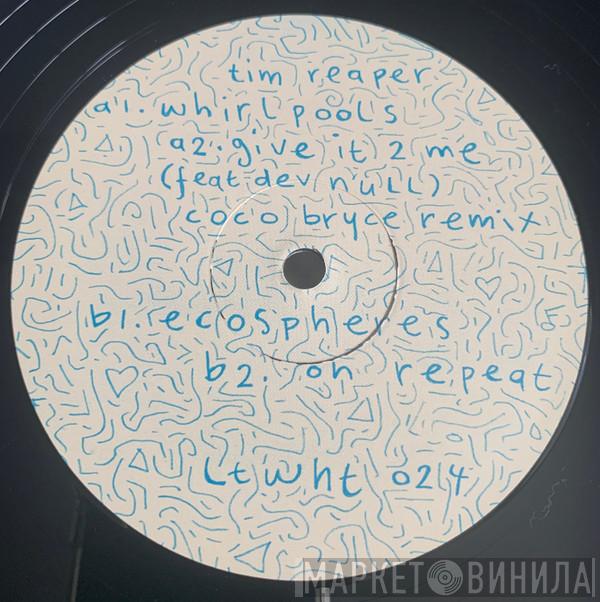 tim reaper
a1. whirlpools
a2. give it 2 me
(feat dev null)
coco bryce remix
b1. ecospheres
b2. on repeat
Ltwht 024
МАРКЕТ ВИНИЛА